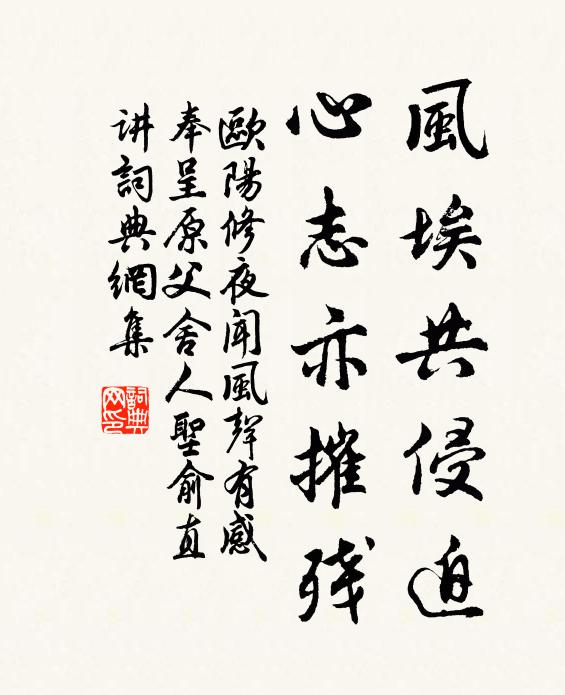 風埃共侵迫
心志亦摧残
歐陽修夜聞風聲有感
奉呈原父舍人聖俞直
讲詞典網集
詞典网印